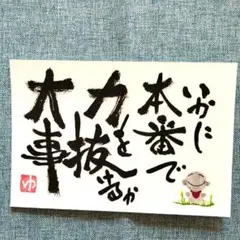 いかに
本番で
力を
抜けるか
大事
ゆ